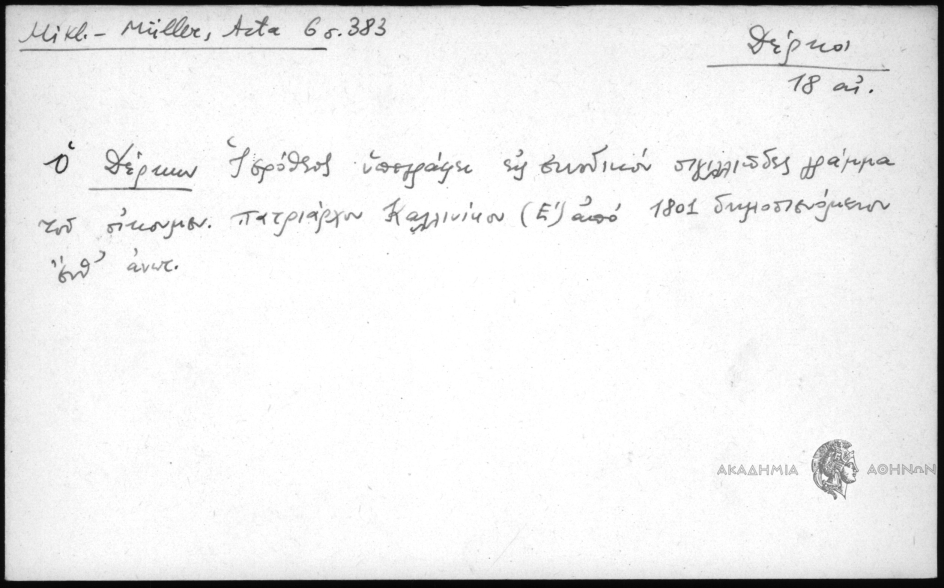 Mikl.- Müller, Acta 6 σ. 383
Δέρκοι
18 αἰ.
Ὁ Δέρκων Ἱερόθεος ὑπογράφει εἰς συνοδικόν σιγιλλιῶδες γράμμα
τοῦ οἰκουμεν. πατριάρχου Καλλινίκου (Ε΄) ἀπό 1801 δημοσιευόμενον
ἔνθ' ἀνωτ.
ΑΚΑΔΗΜΙΑ ΑΘΗΝΩΝ